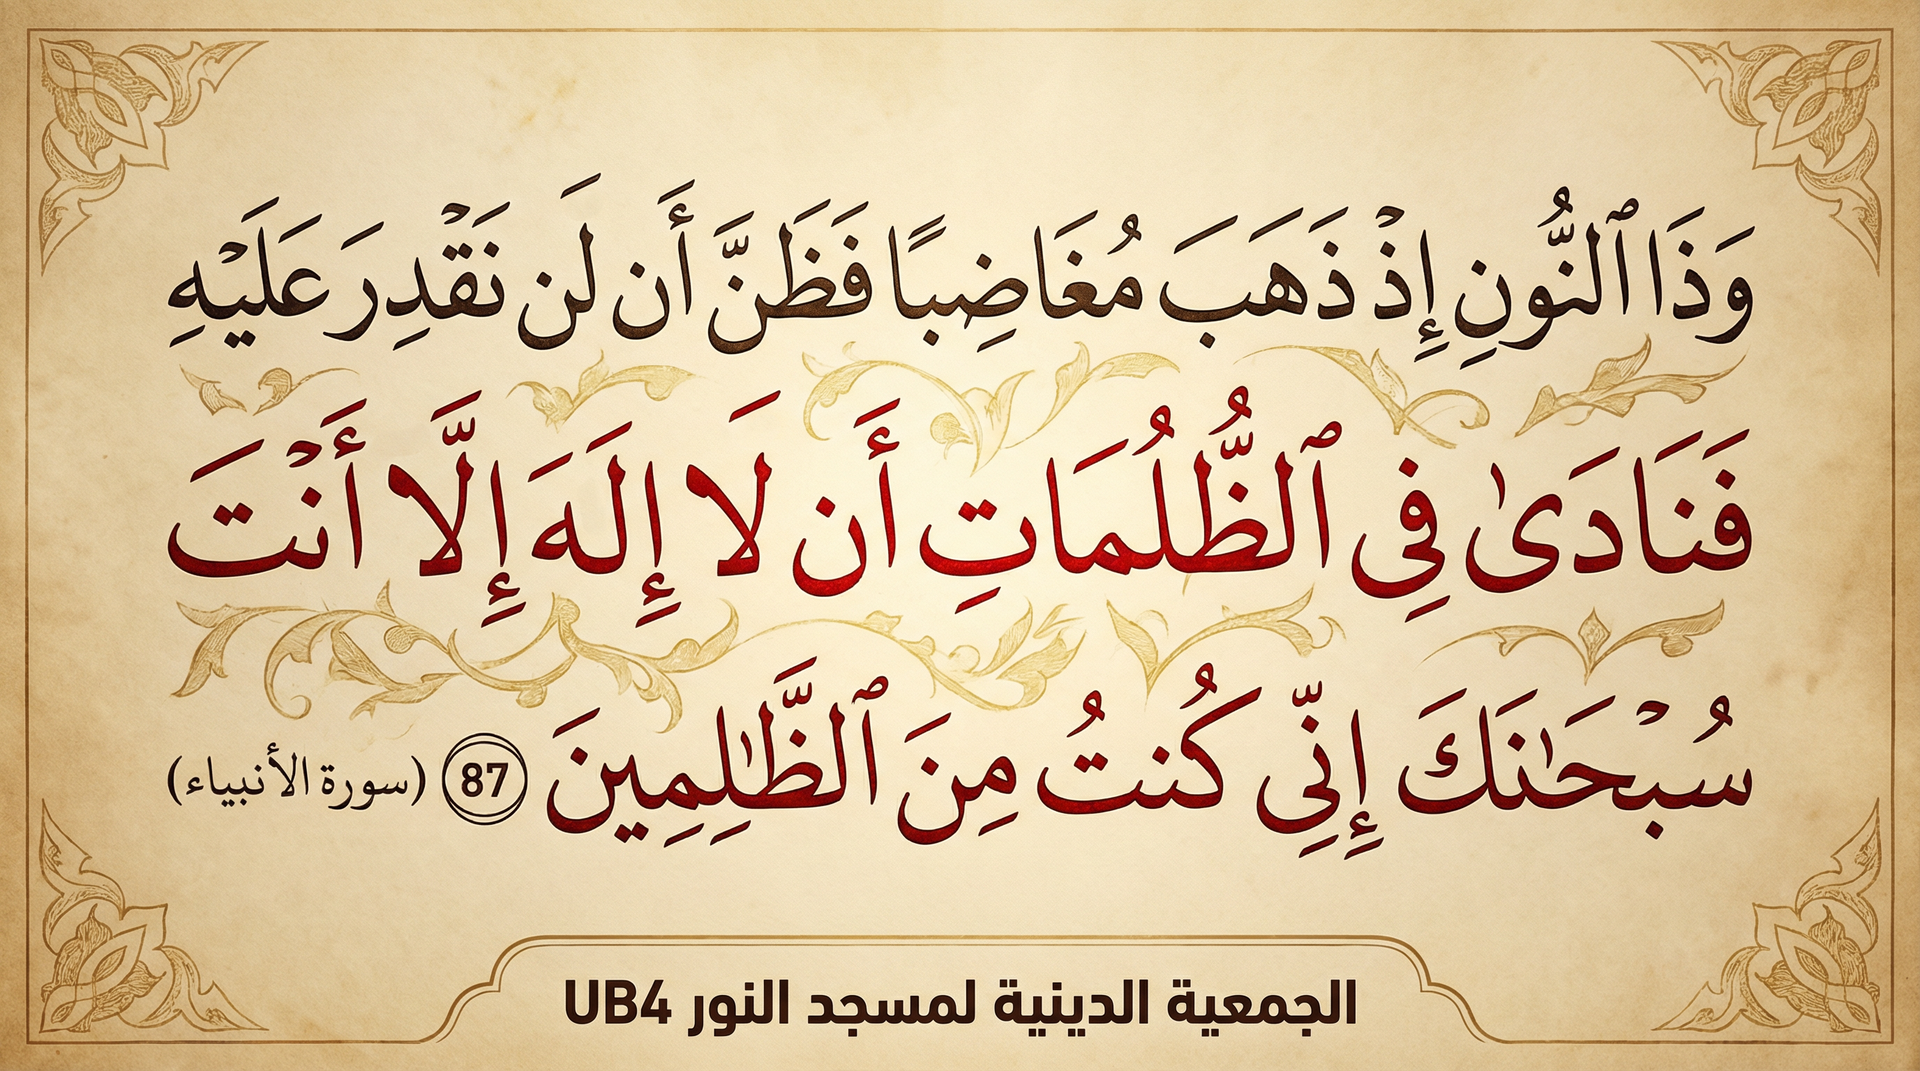 وَذَا ٱلنُّونِ إِذْ ذَهَبَ مُغَاضِبًا فَظَنَّ أَن لَن نَقْدِرَ عَلَيْهِ
فَنَادَىٰ فِي ٱلظُّلُمَاتِ أَن لَا إِلَهَ إِلَّا أَنْتَ
سُبْحَٰنَكَ إِنِّي كُنتُ مِنَ ٱلظَّٰلِمِينَ 87 (سورة الأنبياء)
الجمعية الدينية لمسجد النور UB4